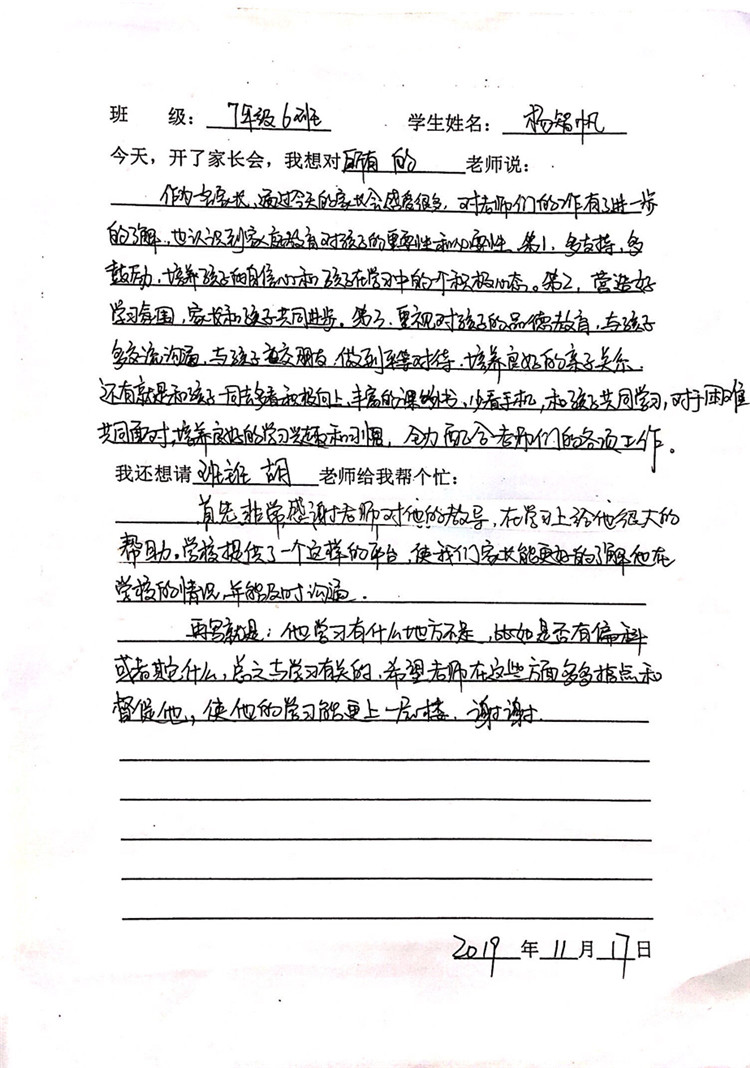 班 级：7年级6班 学生姓名：杨智帆
今天，开了家长会，我想对所有的老师说：
作为一名家长，通过今天的家长会感慨很多，对老师们的工作有了进一步
的了解，也认识到家庭教育对孩子的重要性和必要性。第1，多支持，多
鼓励，培养孩子的自信心和孩子在学习中的一个积极心态。第2，营造好
学习氛围，家长和孩子共同进步。第3，重视对孩子的品德教育，与孩子
多交流沟通，与孩子首交朋友，做到平等对待，培养良好的亲子关系。
还有就是和孩子一同去多看积极向上，丰富的课外书，少看手机，和孩子共同学习，对于困难
共同面对，培养良好的学习兴趣和习惯，全力配合老师们的各项工作。
我还想请班班胡老师给我帮个忙：
首先非常感谢老师对他的教导，在学习上给他很大的
帮助。学校提供了一个这样的平台，使我们家长能更好的了解他在
学校的情况，并能及时沟通。
再写就是：他学习有什么地方不足，比如是否有偏科
或者其它什么，总之与学习有关的，希望老师在这些方面多多指点和
督促他，使他的学习能更上一层楼，谢谢
2019年11月17日